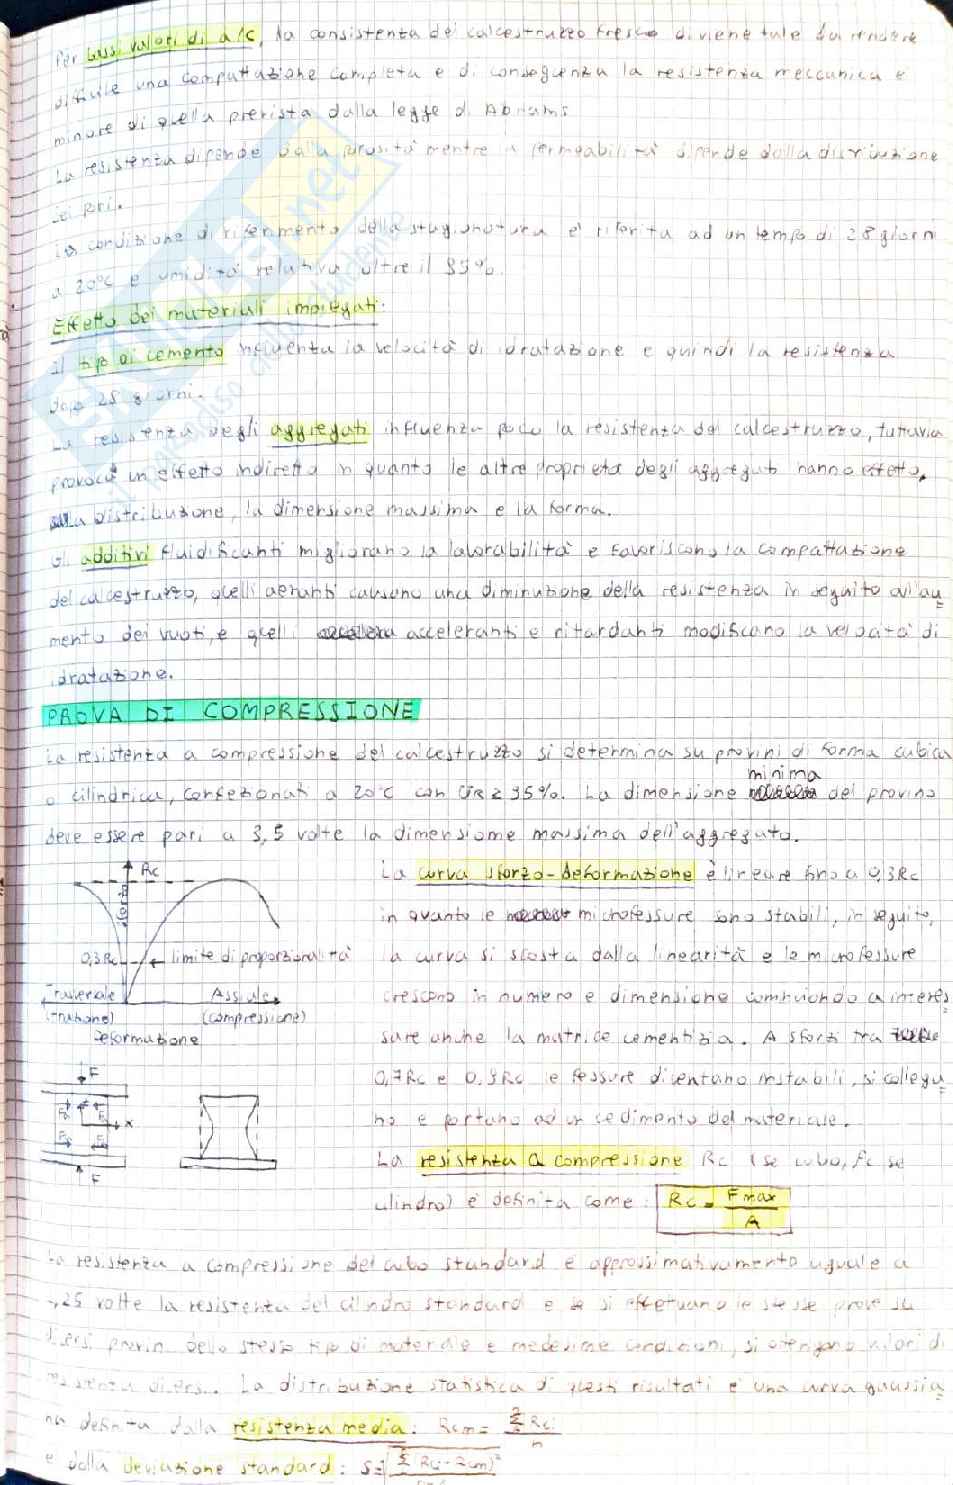 Per bassi valori di a/c, la consistenza del calcestruzzo fresco diviene tale da rendere
difficile una compattazione completa e di conseguenza la resistenza meccanica è
minore di quella prevista dalla legge di Abrams
La resistenza dipende dalla porosità mentre la permeabilità dipende dalla distribuzione
dei pori.
La condizione di riferimento della stagionatura è riferita ad un tempo di 28 giorni
a 20°C e umidità relativa oltre il 95%.
Effetto dei materiali impiegati.
Il tipo di cemento influenza la velocità di idratazione e quindi la resistenza
dopo 28 giorni.
La resistenza degli aggregati influenza poco la resistenza del calcestruzzo, tuttavia
provoca un effetto indiretto in quanto le altre proprietà degli aggregati hanno effetto,
sulla distribuzione, la dimensione massima e la forma.
Gli additivi fluidificanti migliorano la lavorabilità e favoriscono la compattazione
del calcestruzzo, quelli aeranti causano una diminuzione della resistenza in seguito all'au
mento dei vuoti, e quelli acceleranti e ritardanti modificano la velocità di
idratazione.
PROVA DI COMPRESSIONE
La resistenza a compressione del calcestruzzo si determina su provini di forma cubica
minima
o cilindrica, confezionati a 20°C con UR ≥ 95%. La dimensione del provino
deve essere pari a 3,5 volte la dimensione massima dell'aggregato.
Rc
sforzo
0,3Rc
limite di proporzionalità
Trasversale
(trazione)
Assiale
(compressione)
Deformazione
La curva sforzo-deformazione è lineare fino a 0,3Rc
in quanto le microfessure sono stabili, in seguito,
la curva si scosta dalla linearità e le microfessure
crescono in numero e dimensione cominciando a interes
sare anche la matrice cementizia. A sforzi tra
0,7Rc e 0,9Rc le fessure diventano instabili, si collega
no e portano ad un cedimento del materiale.
F
x
F
La resistenza a compressione Rc (se cubo, fc se
cilindro) è definita come: Rc = Fmax / A
La resistenza a compressione del cubo standard è approssimativamente uguale a
1,25 volte la resistenza del cilindro standard e se si effettuano le stesse prove su
diversi provini dello stesso tipo di materiale e medesime condizioni, si ottengono valori di
resistenza diversi. La distribuzione statistica di questi risultati è una curva gaussia
na definita dalla resistenza media: Rcm = Σ Rci / n
e dalla deviazione standard: s = √ Σ (Rci - Rcm)²
SKUOLA.net
il paradiso dello studente